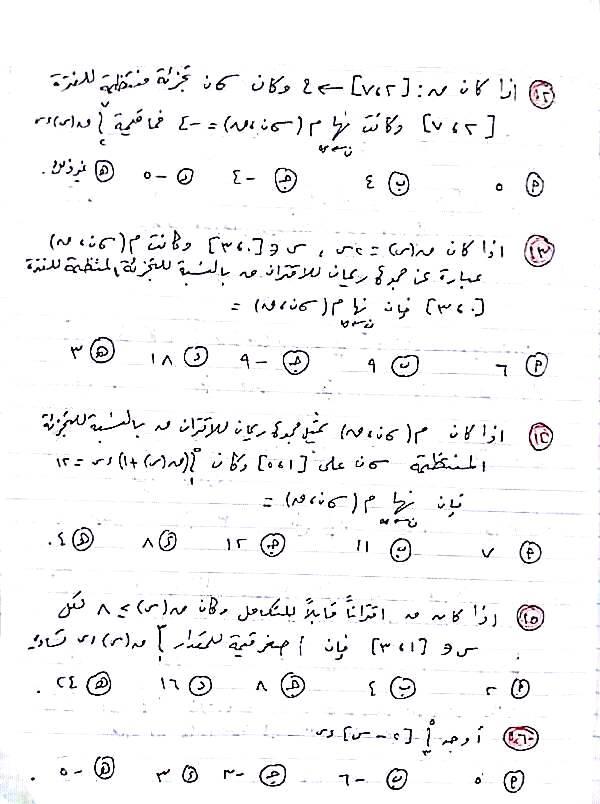 ١٢ اذا كان ق: [٢،٧] ← ع وكان σن تجزئة منتظمة للفترة
[٢،٧] وكانت نها م (σن،ق) = -٤ فما قيمة ∫ ق(س) دس
٢ ٥ ب ٤ ج -٤ د -٥ هـ غير ذلك.
١٣ اذا كان ق(س) = ٢س ، س ∈ [٠،٣] وكانت م (σن،ق)
عبارة عن مجموع ريمان للاقتران ق بالنسبة للتجزئة المنتظمة للفترة
[٠،٣] فإن نها م (σن،ق) =
٢ ٦ ب ٩ ج -٩ د ١٨ هـ ٣
١٤ اذا كان م (σن،ق) يمثل مجموع ريمان للاقتران ق بالنسبة للتجزئة
المنتظمة σن على [١،٥] وكان ∫ (ق(س)+١) دس = ١٢
فإن نها م (σن،ق) =
٢ ٧ ب ١١ ج ١٢ د ٨ هـ ٤.
١٥ إذا كان ق اقتراناً قابلاً للتكامل وكان ق(س) ≥ ٨ لكل
س ∈ [١،٣] فإن أصغر قيمة للمقدار ∫ ق(س) دس تساوي
٢ ٢ ب ٤ ج ٨ د ١٦ هـ ٢٤.
أوجد ∫ [٢ - س] دس
٢ ٥ ب -٦ ج -٣ د ٣ هـ -٥.